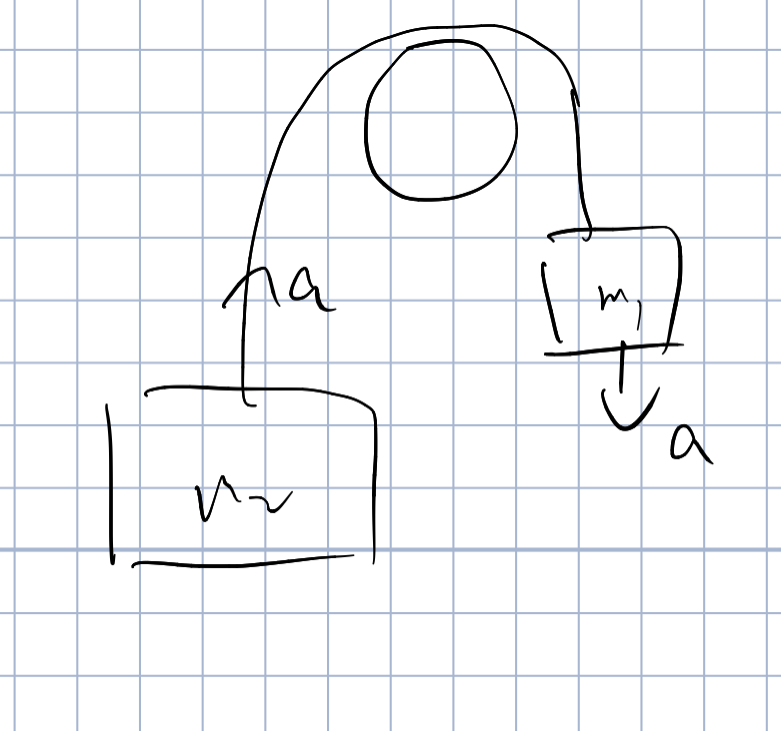 a
m₁
a
m₂